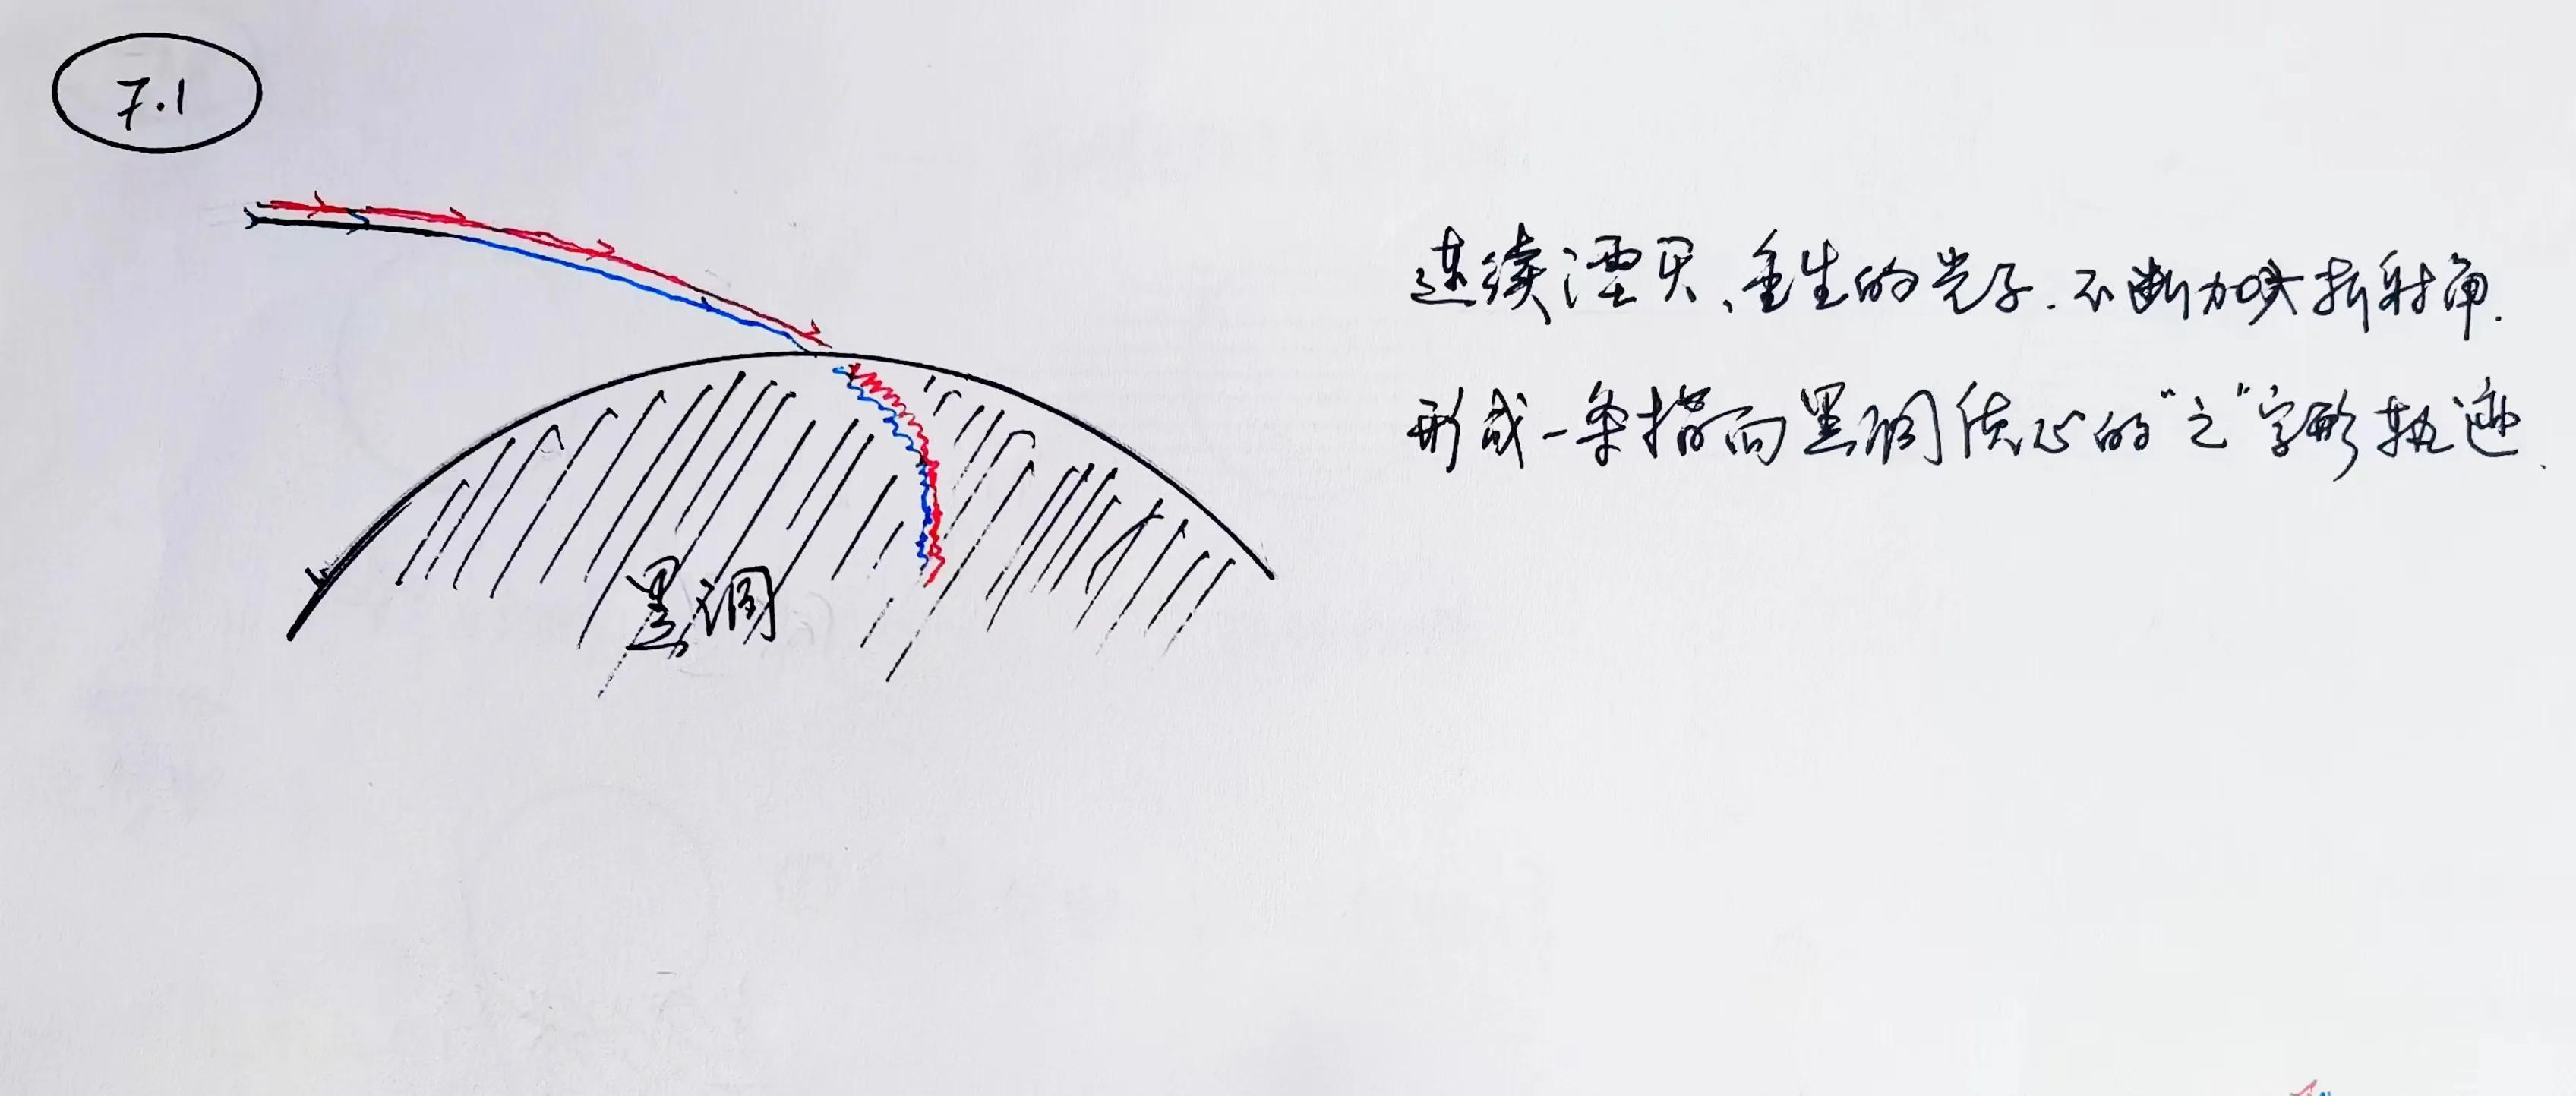 7.1
连续湮灭、重生的光子.不断加大折射角.
形成一条指向黑洞质心的"之"字形轨迹.
黑洞